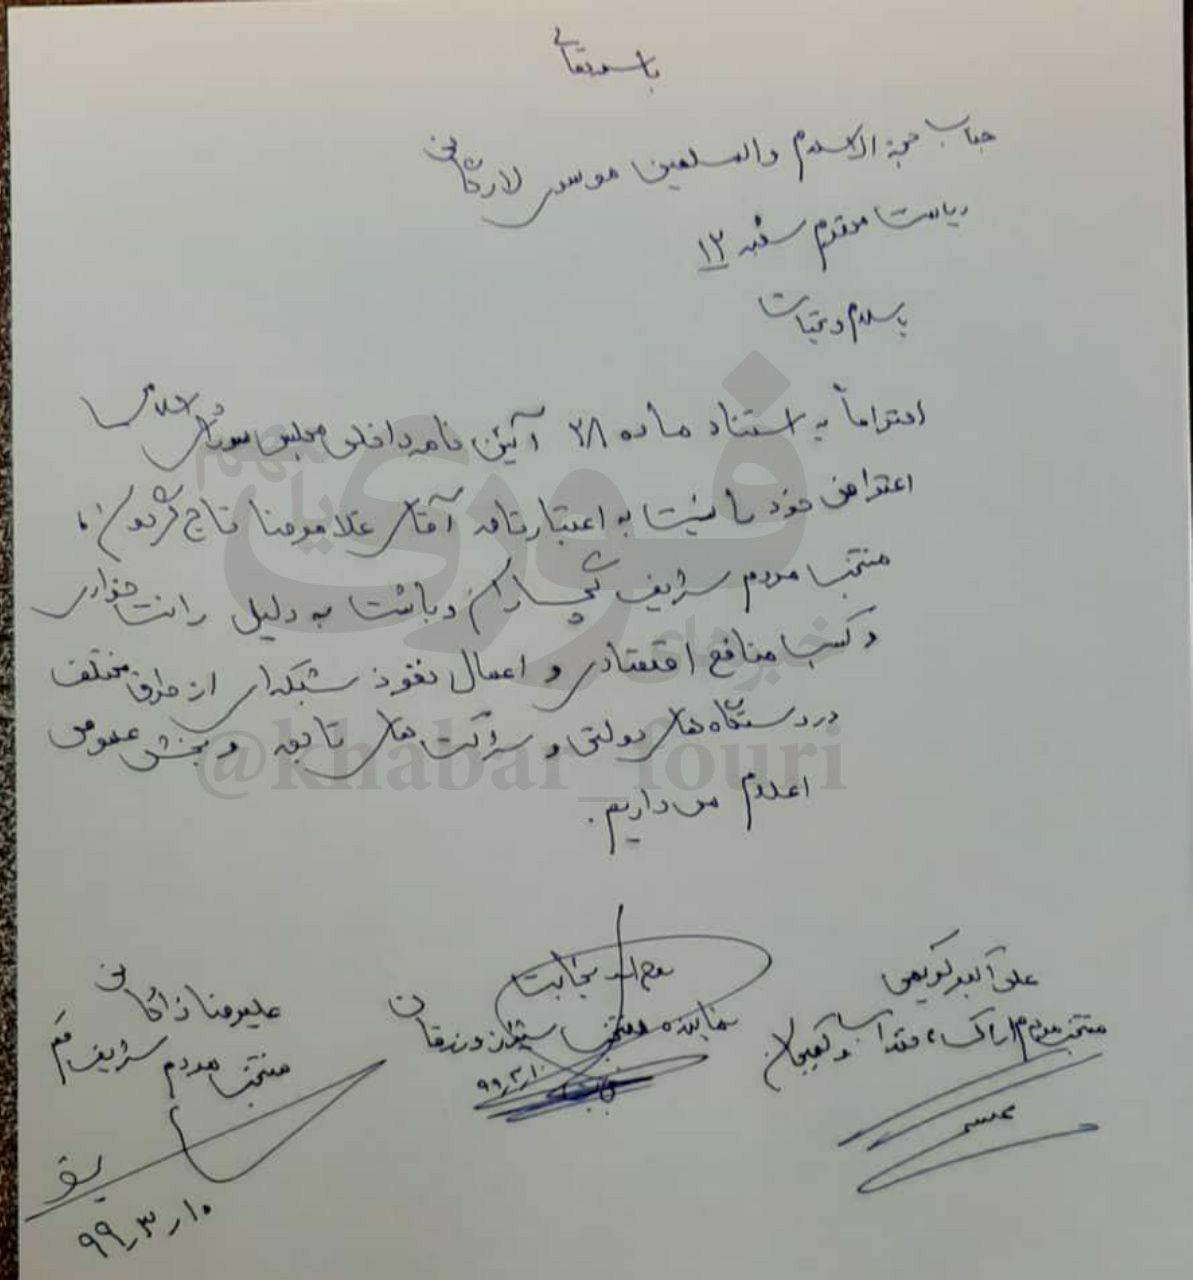 باسمه تعالی
جناب حجة الاسلام والمسلمین موسوی لارگانی
ریاست محترم شعبه ۱۲
باسلام و تحیات
احتراماً به استناد ماده ۲۸ آیین نامه داخلی مجلس شورای اسلامی
اعتراض خود را نسبت به اعتبارنامه آقای غلامرضا تاجگردون،
منتخب مردم شریف گچساران و باشت به دلیل رانت خواری
و کسب منافع اقتصادی و اعمال نفوذ شبکه ای از طرق مختلف
در دستگاه های دولتی و شرکت های تابعه و بخش عمومی
اعلام می داریم.
علی اکبر کریمی
منتخب مردم اراک، خنداب و کمیجان
روح اله نجابت
نماینده منتخب شیراز و زرقان
۹۹٫۳٫۱۰
علیرضا زاکانی
منتخب مردم شریف قم
۹۹٫۳٫۱۰
فوری
خبرهای
@khabar_fouri